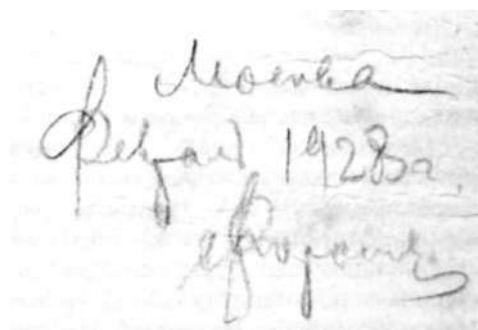 Москва
Февраль 1928 г.